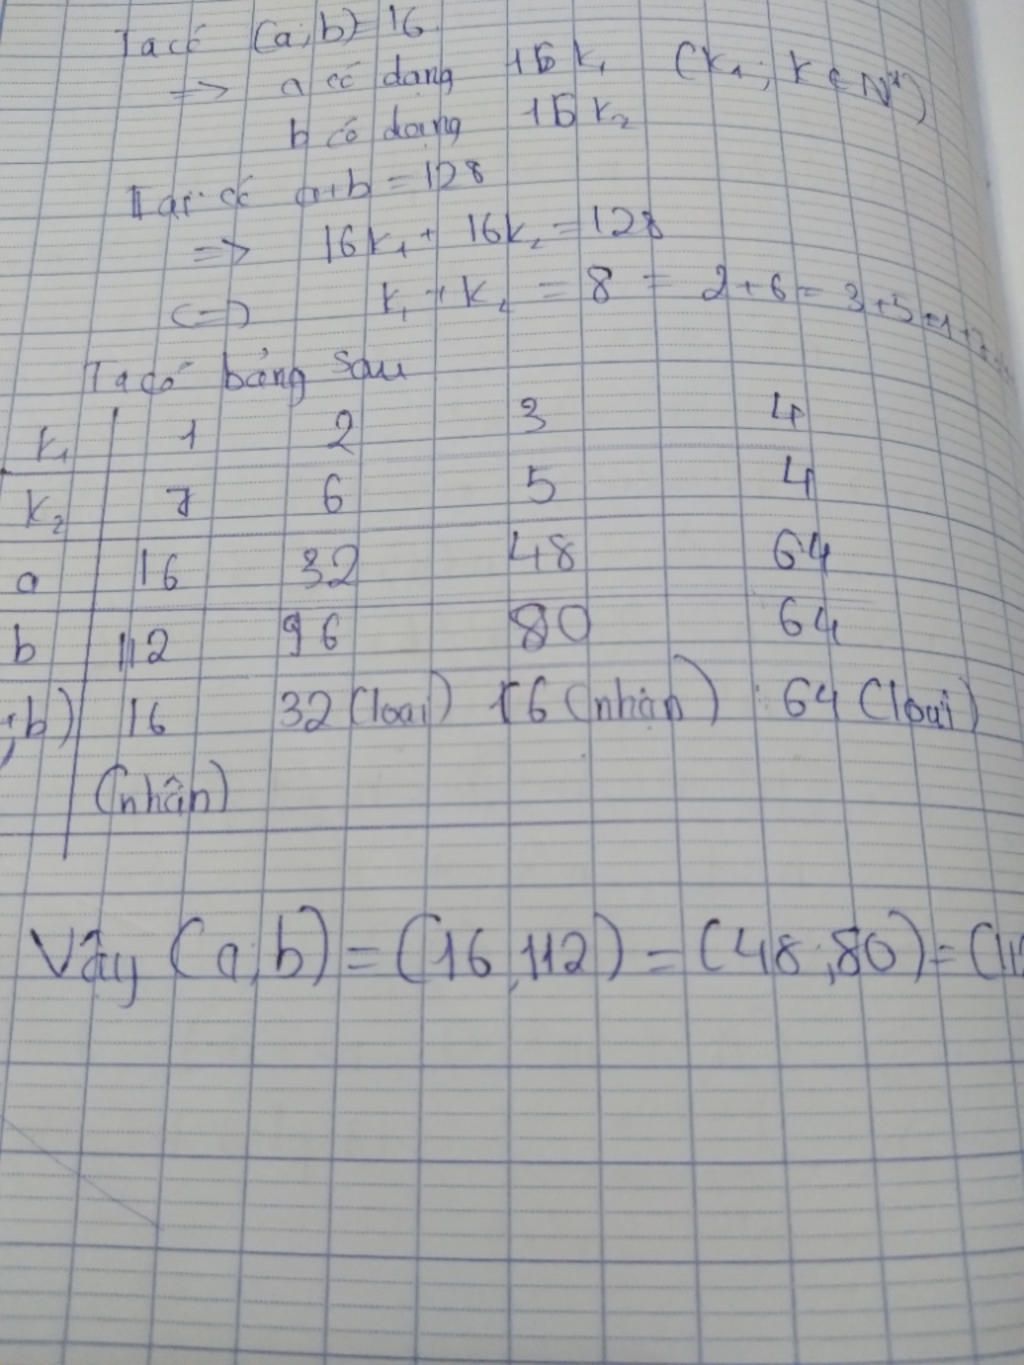 Ta có (a;b)=16.
=> a có dạng 16k₁ (k₁; k ∈ N*)
b có dạng 16k₂
Lại có a+b=128
=> 16k₁ + 16k₂ = 128
<=> k₁ + k₂ = 8 = 2+6 = 3+5
Ta có bảng sau
k₁ 1 2 3 4
k₂ 7 6 5 4
a 16 32 48 64
b 112 96 80 64
;b) 16 32 (loại) 16 (nhận) 64 (loại)
(nhận)
Vậy (a;b) = (16,112) = (48;80) = (